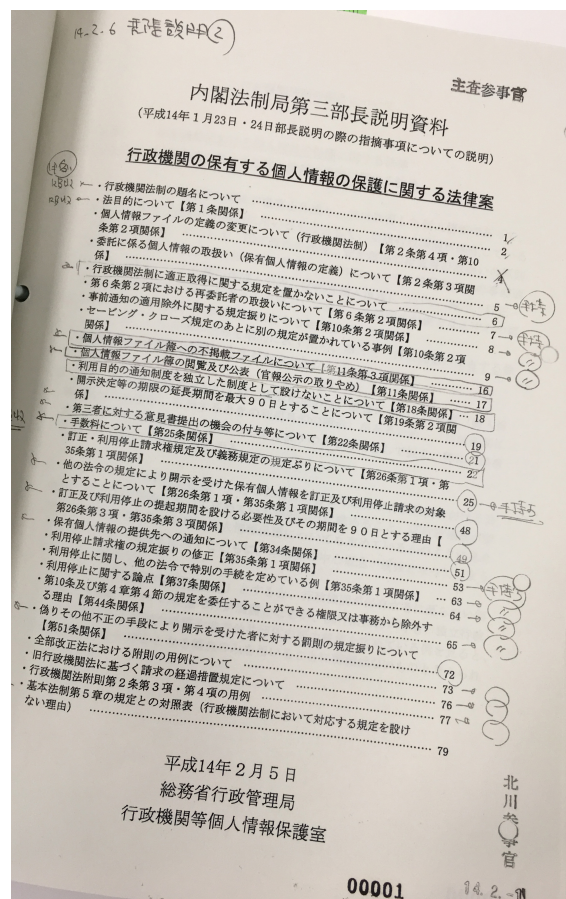 14.2.6
主査参事官
内閣法制局第三部長説明資料
(平成14年1月23日・24日部長説明の際の指摘事項についての説明)
行政機関の保有する個人情報の保護に関する法律案
・行政機関法制の題名について 1
・法目的について【第1条関係】 2
・個人情報ファイルの定義の変更について(行政機関法制)【第2条第4項・第10
条第2項関係】 4
・委託に係る個人情報の取扱い(保有個人情報の定義)について【第2条第3項関
係】 5
・行政機関法制に適正取得に関する規定を置かないことについて 6
・第6条第2項における再委託者の取扱いについて【第6条第2項関係】 7
・事前通知の適用除外に関する規定振りについて【第10条第2項関係】 8
・セービング・クローズ規定のあとに別の規定が置かれている事例【第10条第2項
関係】 9
・個人情報ファイル簿への不掲載ファイルについて【第11条第3項関係】 16
・個人情報ファイル簿の閲覧及び公表(官報公示の取りやめ)【第11条関係】 17
・利用目的の通知制度を独立した制度として設けないことについて【第18条関係】 18
・開示決定等の期限の延長期間を最大90日とすることについて【第19条第2項関
係】 19
・第三者に対する意見書提出の機会の付与等について【第22条関係】 21
・手数料について【第25条関係】
・訂正・利用停止請求権規定及び義務規定の規定ぶりについて【第26条第1項・第
35条第1項関係】 25
・他の法令の規定により開示を受けた保有個人情報を訂正及び利用停止請求の対象
とすることについて【第26条第1項・第35条第1項関係】 48
・訂正及び利用停止の提起期間を設ける必要性及びその期間を90日とする理由【
第26条第3項・第35条第3項関係】 49
・保有個人情報の提供先への通知について【第34条関係】 51
・利用停止請求権の規定振りの修正【第35条第1項関係】 53
・利用停止に関し、他の法令で特別の手続を定めている例【第35条第1項関係】 63
・利用停止に関する論点【第37条関係】 64
・第10条及び第4章第4節の規定を委任することができる権限又は事務から除外す
る理由【第44条関係】 65
・偽りその他不正の手段により開示を受けた者に対する罰則の規定振りについて
【第51条関係】 72
・全部改正法における附則の用例について 73
・旧行政機関法に基づく請求の経過措置規定について 76
・行政機関法附則第2条第3項・第4項の用例 77
・基本法制第5章の規定との対照表(行政機関法制において対応する規定を設け
ない理由) 79
平成14年2月5日
総務省行政管理局
行政機関等個人情報保護室
北川参事官
00001
14.2.